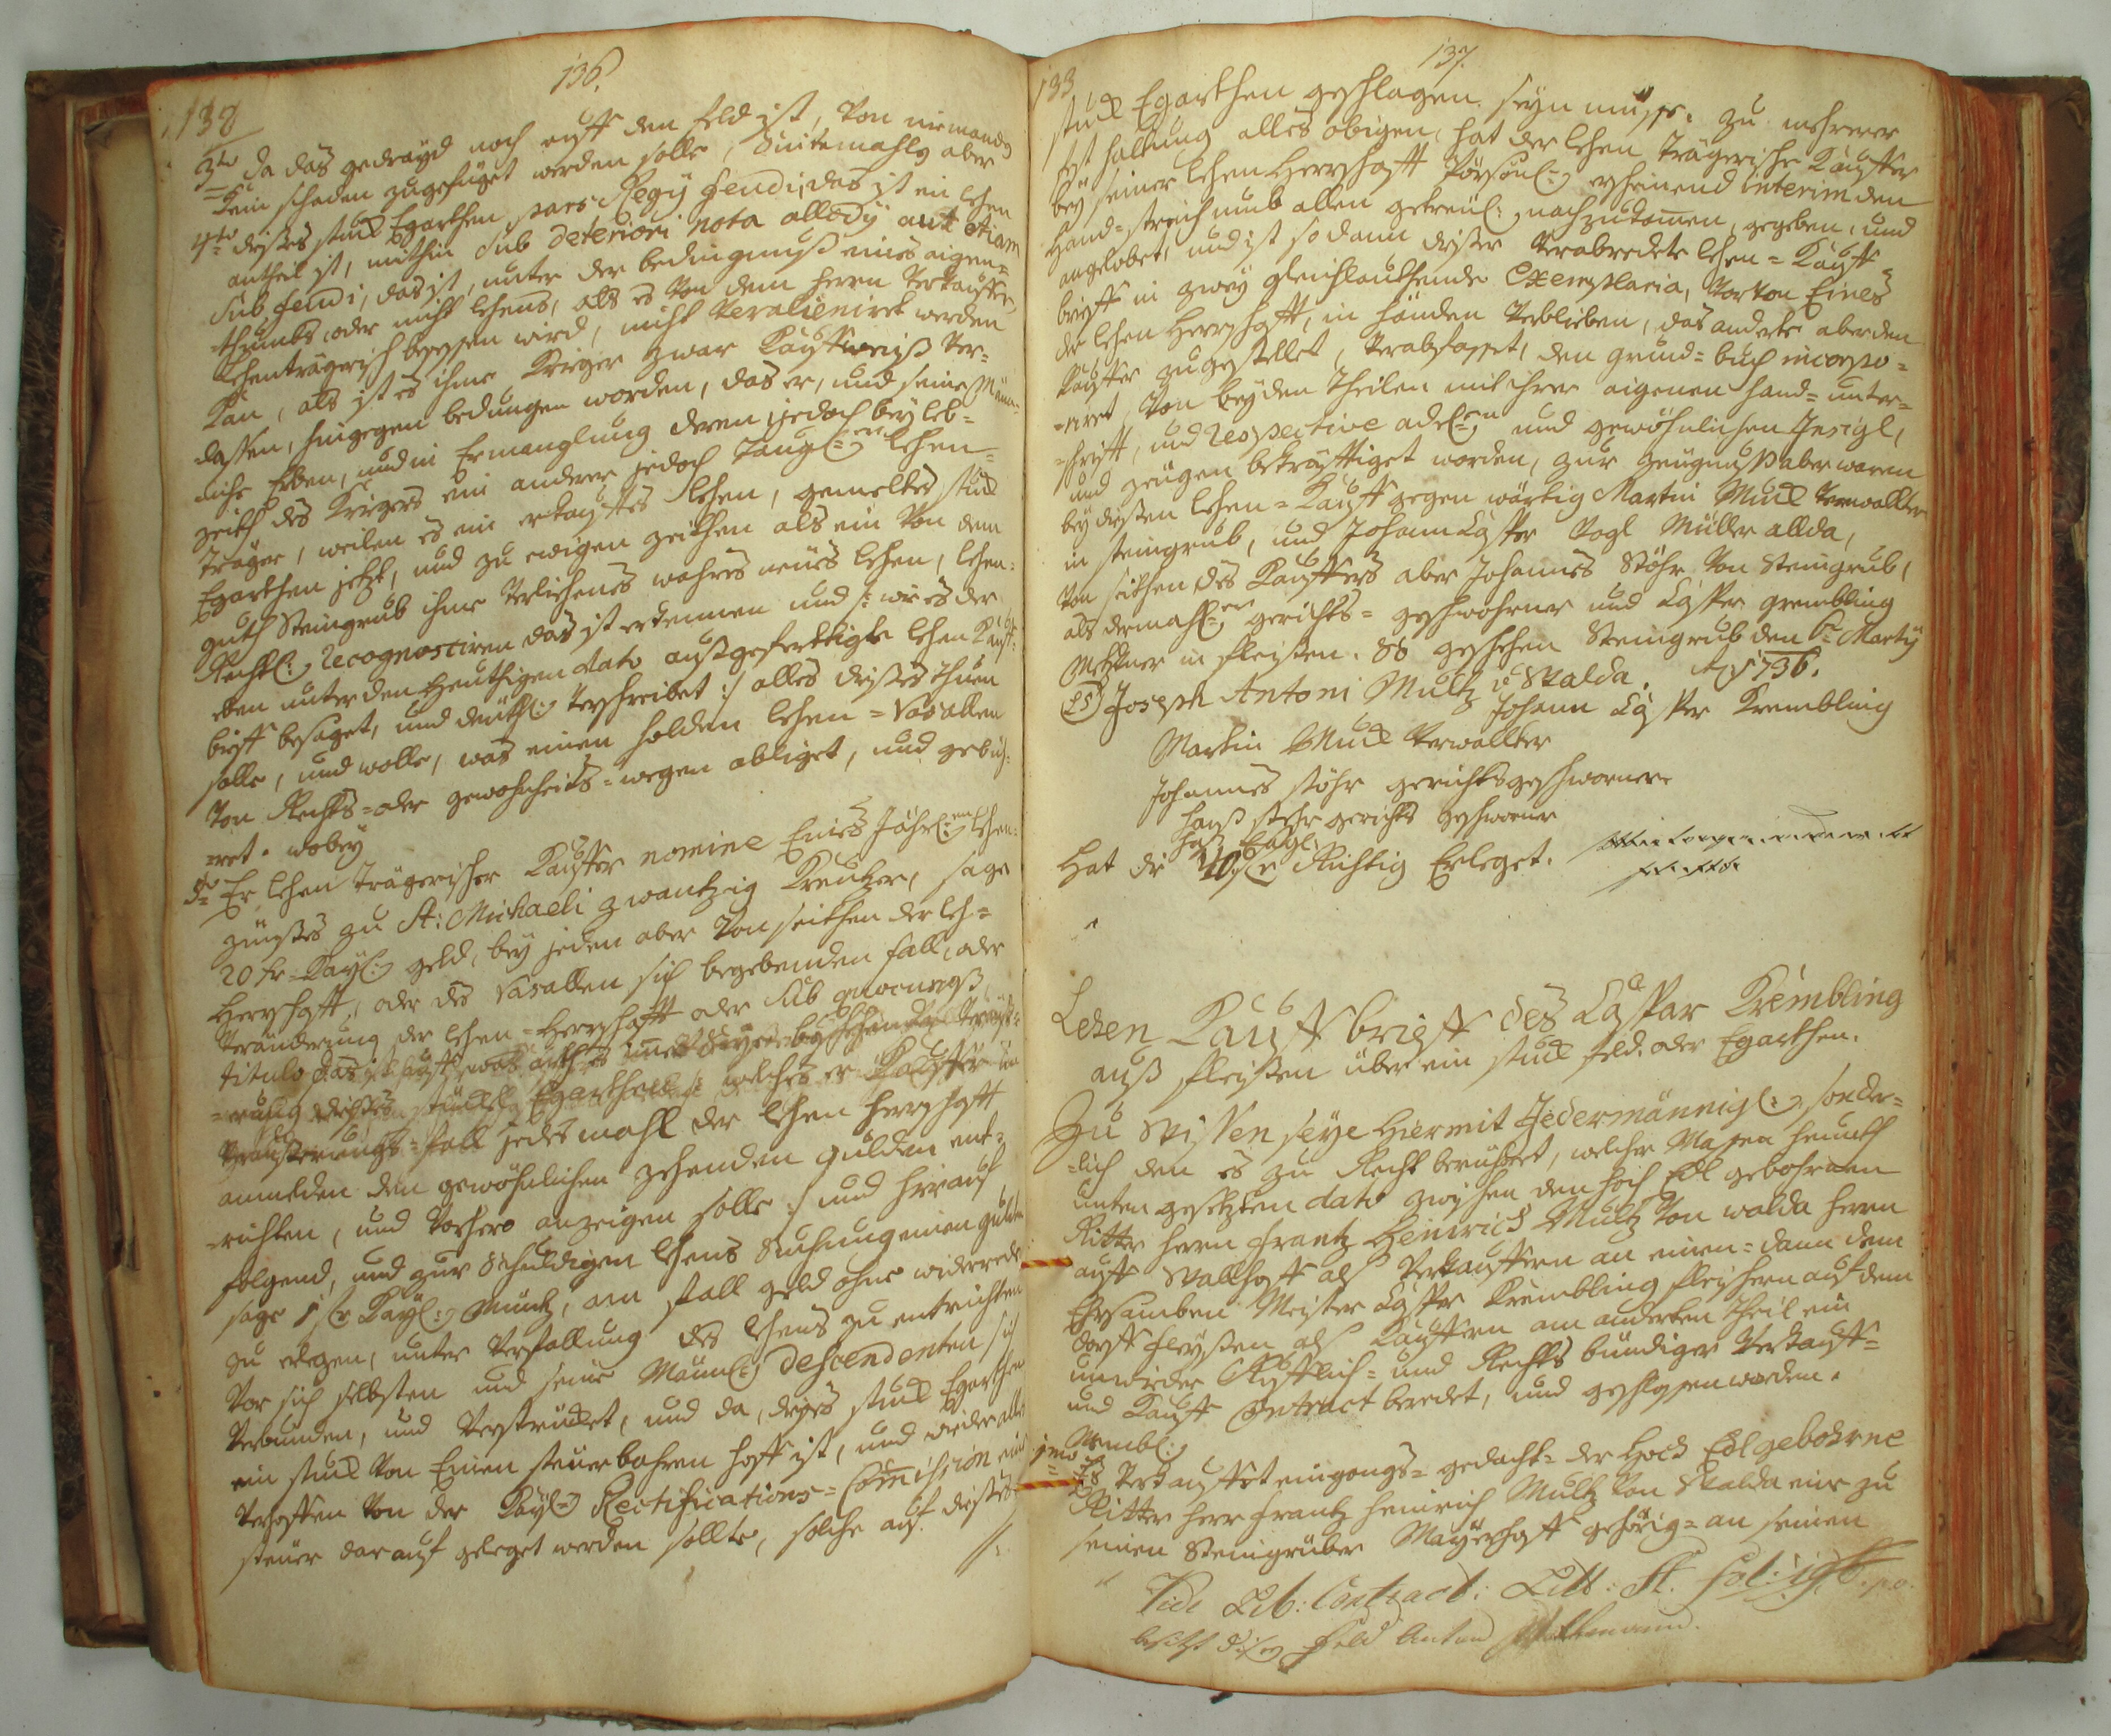 136.
138
3tio da das gedrayd noch auff den feld ist, von niemands
kein schaden zugefüget werden solle, Sintemahls aber
4to dißes stuck Egarthen pars Regij feudi, das ist ein lehen
antheil ist, mithin sub deteriori nota allodij aut etiam
sub feudi, das ist, unter der bedingnuß eines aigen=
thumbs, oder nicht lehens, als es von dem herrn verkauffer
lehenträgerisch besessen wird, nicht veralienirt werden
kan, als ist es ihme Krieger zwar kauffweiß ver=
lassen, hingegen bedungen worden, das er, und seine Män=
liche Erben, und in Ermanglung deren jedoch bey leb=
zeith des Kriegers ein anderer jedoch taugl:er lehen=
träger, weilen es ein erkaufftes lehen, gemeltes stuck
Egarthen jetzt, und zu ewigen zeithen als ein von dem
guth Steingrub ihme verliehenes wahres neues lehen, lehen=
Rechtl: recognosciren das ist erkennen und /: wie es der
eben unter den heuthigen dato außgefertigte lehen Kauff=
brieff besaget, und deutl: verschreibet :/ alles dißes thuen
solle, und wolle, was einen holden lehen = Vasallen
von Rechts= oder gewohnheits= wegen obliget, und gebüh=
ret. wobey
5to Er lehen trägerischer Kauffer nomine Eines Jährl:en lehen=
zinßes zu St: Michaeli zwantzig Kreutzer, sage
20 kr Kayl: geld, bey jeden aber von seithen der leh=
Herrschafft, oder des Vasallen sich begebenden fall, oder
Veränderung der lehen = herrschafft oder sub quocunq
titulo das ist auff was arth es immer seye
=rung dißes stuckl Egarthen /: welches er Kauffer in
Veraüßerungs= fall jedes mahl der lehen herrschafft
anmelden den gewöhnlichen zehenden gulden ent=
richten, und vorhero anzeigen solle :/ und hierauf
folgend, und zur schuldigen lehens Suchung einen gulden
sage 1 f Kayl: Müntz, an fall geld ohne widerrede
zu erlegen, unter verfallung des lehens zu entrichten
vor sich selbsten und seine Mänl: Descendenten sich
verbunden, und verstricket, und da, dißes stuck Egarthen
ein stuck von Einen steuerbahren hoff ist, und wieder alles
verhoffen von der Kayl: Rectifications= Commission eine
steuer darauf geleget werden sollte, solche auf dißes
//:
137.
133
stuck Egarthen geschlagen seyn müsse. zu mehrerer
fest haltung alles obigen, hat der lehen trägerische Kauffer
bey seiner lehen Herrschafft Persönl: erscheinend interim den
Hand= streich umb allen getreul: nachzukomen, gegeben, und
angelobet, und ist so dann dißer verabredete lehen = Kauff
brieff in zwey gleichlauthende Exemplaria, wovon Eines
der lehen Herrschafft, in handen verblieben, das andere aber den
Kauffer zugestellet, verabfasset, den grund= buch incorpo=
riret, von beyden theilen mit ihrer aigenen hand= unter=
schrifft, und respective adel:en und gewöhnlichen Insigl,
und zeugen bekräfftiget worden, zur zeugnuß aber waren
bey dißen lehen = Kauff gegen wärtig Martin Muck verwallter
in steingrub, und Johann Caspar Vogl Müller allda,
von seithen des Kauffers aber Johannes Stöhr von Steingrub,
als dermahl:er gerichts= geschwohrner und Caspar grembling
Metzner in fleißen. So geschehen Steingrub den 6t Martij
Ao 1736.
(LS) Joseph Antoni Multz v Walda.
Johann Caspar Krembling
Martin Muck verwallter
Johannes stöhr gerichtsgeschworner
hanß stehr gerichts geschworner
Hat die 10 f Richtig Erleget.
Lehen Kauff brieff des Caspar Krembling
auß fleißen über ein stuck feld oder Egarthen.
Zu Wissen seye hiermit Jedermännigl: sonder=
lich den es zu Recht berühret, welcher Masen heunth
unten gesetzten dato zwischen den hoch Edl gebohrnen
Ritter herrn frantz Heinrich Multz von walda herrn
auff Wallhoff als verkauffern an einen= dann dem
Ehrsamben Meister Caspar Krembling fleischern auß dem
dorff fleyßen als Kauffern am anderten theil ein
unwieder Rufflich= und Rechts bündiger Verkauff=
und Kauff Contract beredet, und geschlossen worden.
Nembl:
1mo Es verkauffet eingangs= gedacht= der Hoch Edlgebohrne
Ritter herr frantz heinrich Multz von Walda ein zu
seinen Steingrüber Mayerhoff gehörig= an seinen
Vide Lib: Contract: Litt: A. fol: 196. p.o.
besitzt dises feld Anton